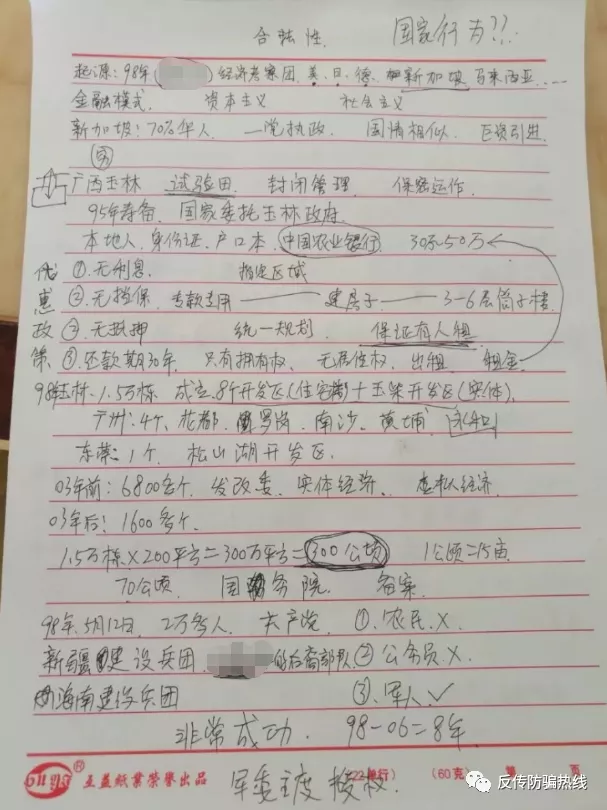 合法性. 国家行为??
起源: 98年( 经济考察团. 美. 日. 德. 新加坡. 马来西亚......
金融模式. 资本主义 社会主义
新加坡: 70%华人. 一党执政. 国情相似. 巨资引进
广西玉林 试验田. 封闭管理. 保密运作.
95年筹备. 国家委托玉林政府.
本地人. 身份证. 户口本. 中国农业银行. 30万~50万
优惠政策
①.无利息. 指定区域
②.无担保. 专款专用 —— 建房子 —— 3-6层筒子楼.
③.无抵押 统一规划. 保证有人租
④.还款期30年. 只有拥有权. 无居住权. 出租. 租金
98年玉林. 1.5万栋 成立8个开发区(住宅) + 玉柴开发区(实体).
广州: 4个. 花都. 萝岗. 南沙. 黄埔.
东莞: 1个. 松山湖开发区.
03年前: 6800多个. 发改委. 实体经济. 虚拟经济
03年后: 1600多个.
1.5万栋×200平方=300万平方=300公顷 1公顷=15亩.
70公顷. 国务院. 备案.
98年. 5月12日. 2万多人. 共产党. ①.农民.×
新疆建设兵团. 的后裔部队 ②公务员.×
海南建设兵团 ③.军人.✓
非常成功. 98-06=8年.
玉益紙業荣譽出品 (22单行) (60克) 第 页
军委主席授权
反传防骗热线